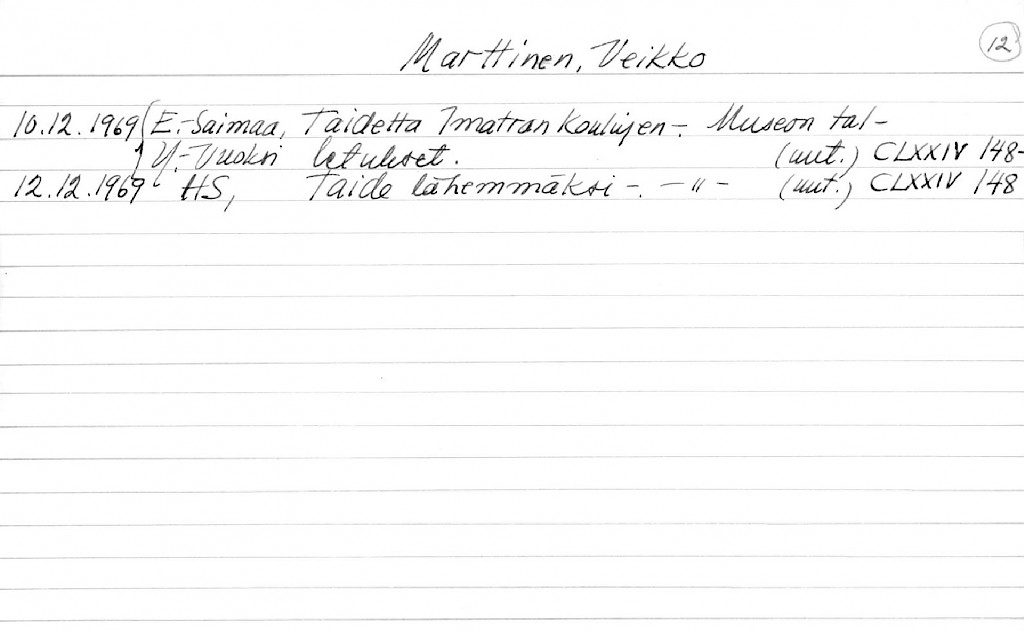 Marttinen, Veikko
12
10.12.1969 { E.-Saimaa, Taidetta Imatran koulujen -. Museon tal-
Y.-Vuoksi letukset. (uut.) CLXXIV 148-
12.12.1969 HS, Taide lähemmäksi -. -"- (uut.) CLXXIV 148